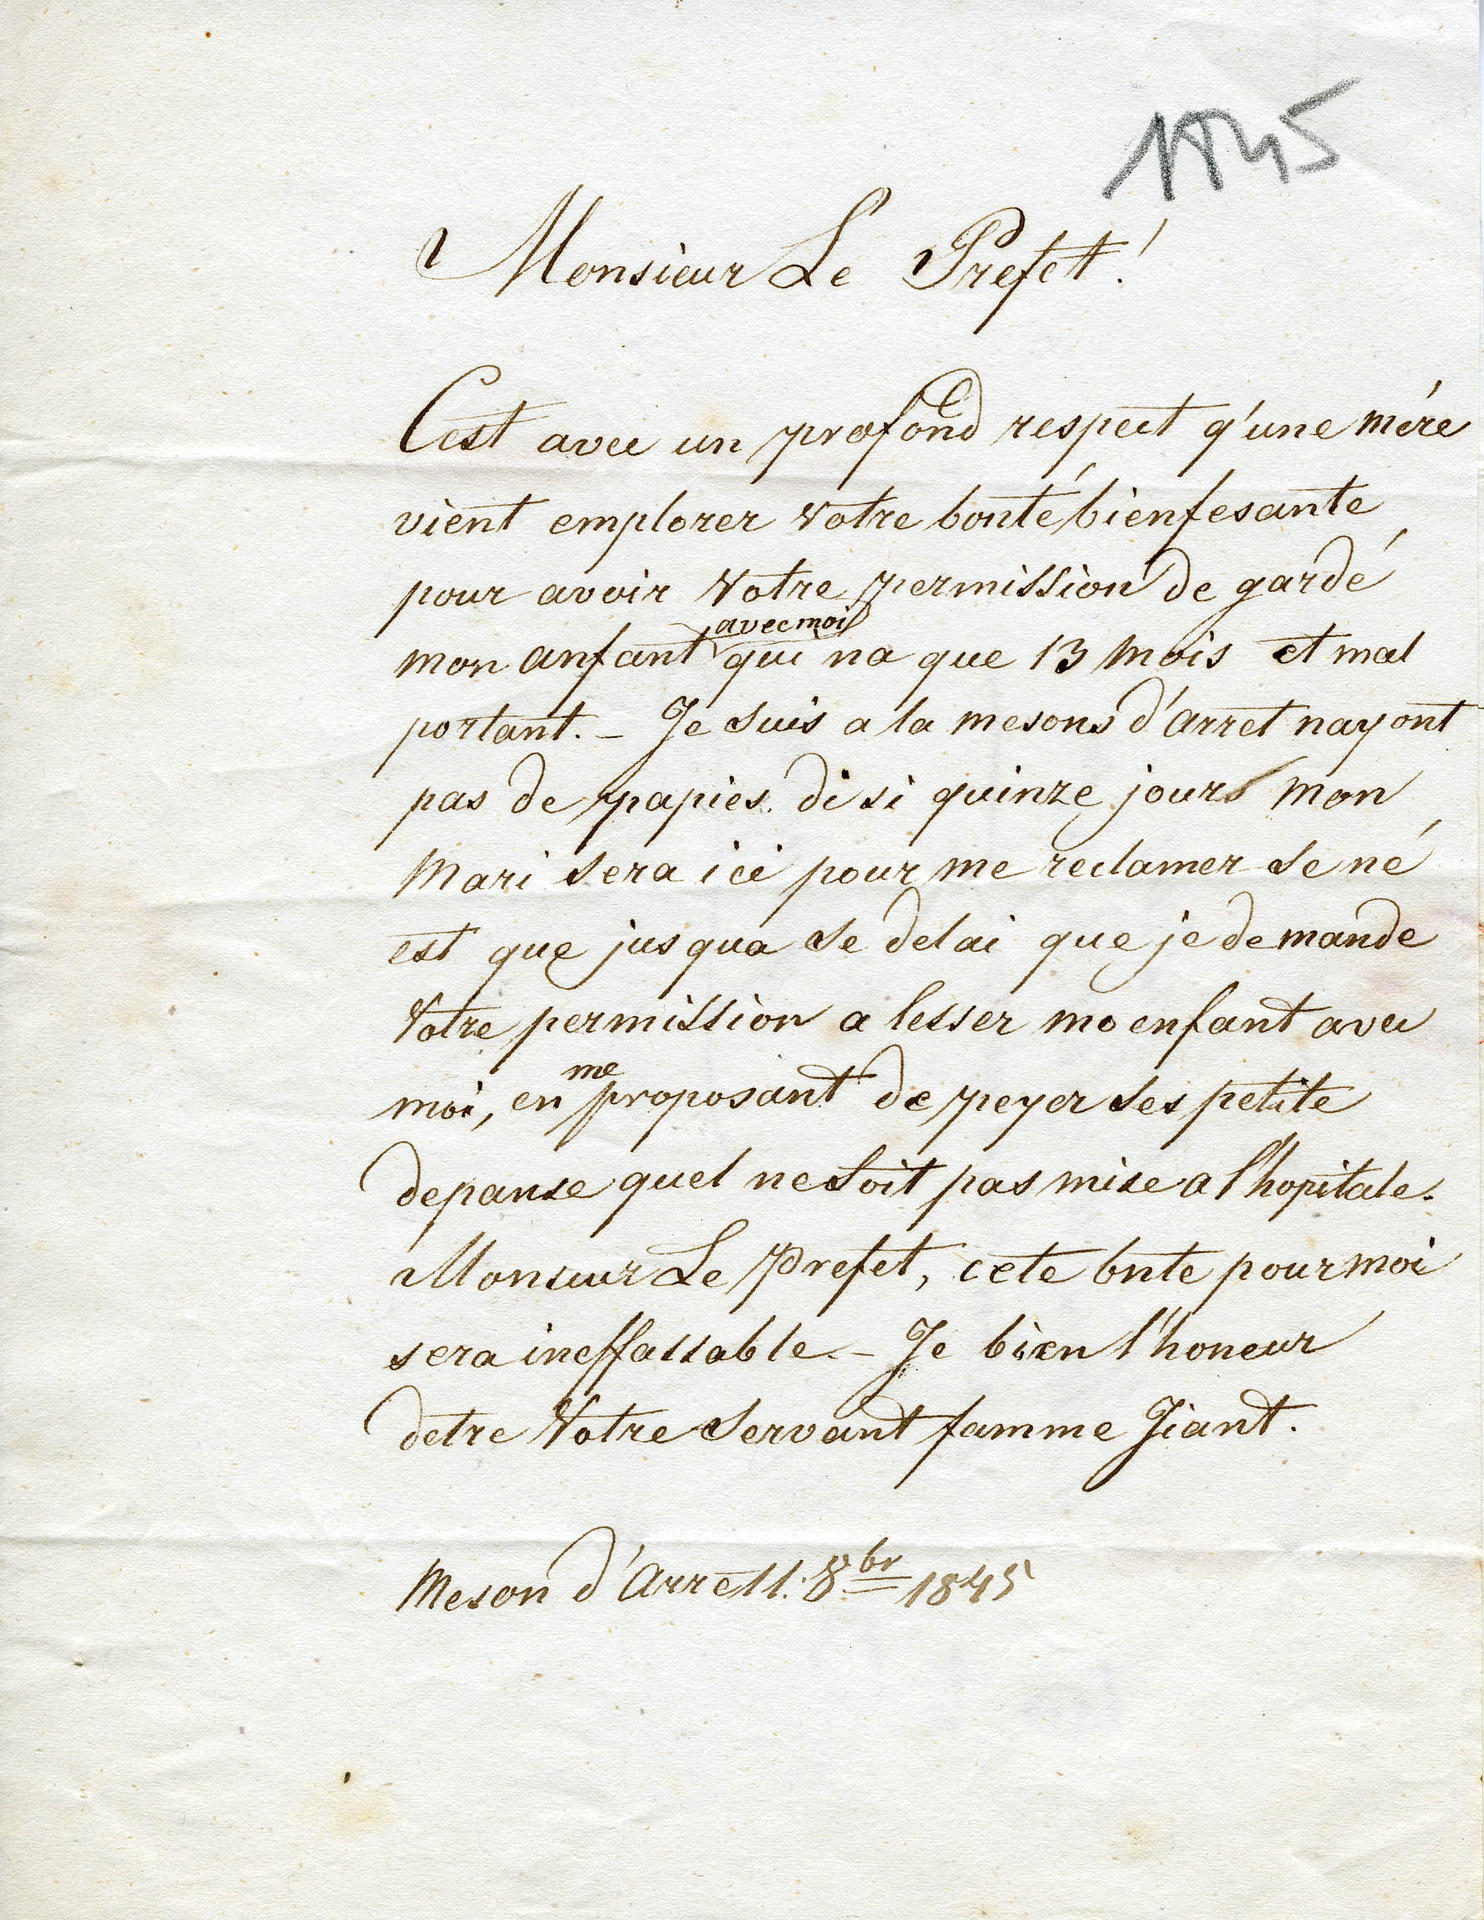 1845
Monsieur Le Prefet!
Cest avec un profond respect q'une mére
vient emplorer votre bonté bienfesante
pour avoir votre permission de gardé
avec moi
mon anfant qui na que 13 mois et mal
portant. – Je suis a la mesons d'arret nayont
pas de papies. di si quinze jours mon
Mari sera ici pour me reclamer se né
est que jusqua se delai que je demande
Votre permission a lesser mo enfant avec
me
moi, en proposant de peyer ses petite
depanse quel ne soit pas mise a l'hopitale.
Monsieur Le Prefet, cete bnte pour moi
sera ineffassable – Je bien l'honeur
detre Votre servant famme Jiant.
Meson d'Arret 1. 8br 1845